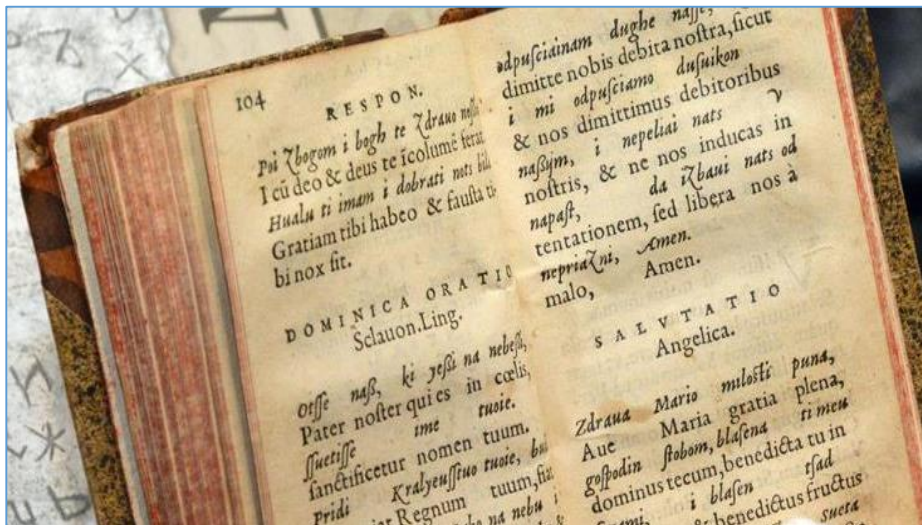 104
RESPON.
Poi Zbogom i bogh te Zdrauo
I cū deo & deus te īcolumē ferat
Hualu ti imam i dobrati nots
Gratiam tibi habeo & fausta ti-
bi nox ſit.
DOMINICA ORATIO
Sclauon.Ling.
Otſſe naß, ki yeßi na nebeßi,
Pater noſter qui es in cœlis,
ſſuetiſſe ime tuoie.
ſanctificetur nomen tuum.
Pridi Kralyeuſſtuo tuoie,
Regnum tuum,
na nebu i
odpuſciainam dughe naſſe,
dimitte nobis debita noſtra, ſicut
i mi odpuſciamo duſuikon
& nos dimittimus debitoribus
naßym, i nepeliai nats v
noſtris, & ne nos inducas in
napaſt, da iZbaui nats od
tentationem, ſed libera nos à
nepriaZni, Amen.
malo, Amen.
SALVTATIO
Angelica.
Zdraua Mario miloſti puna,
Aue Maria gratia plena,
goſpodin ſtobom, blaſena ti meu
dominus tecum, benedicta tu in
i blaſen tſad
& benedictus fructus
sueta